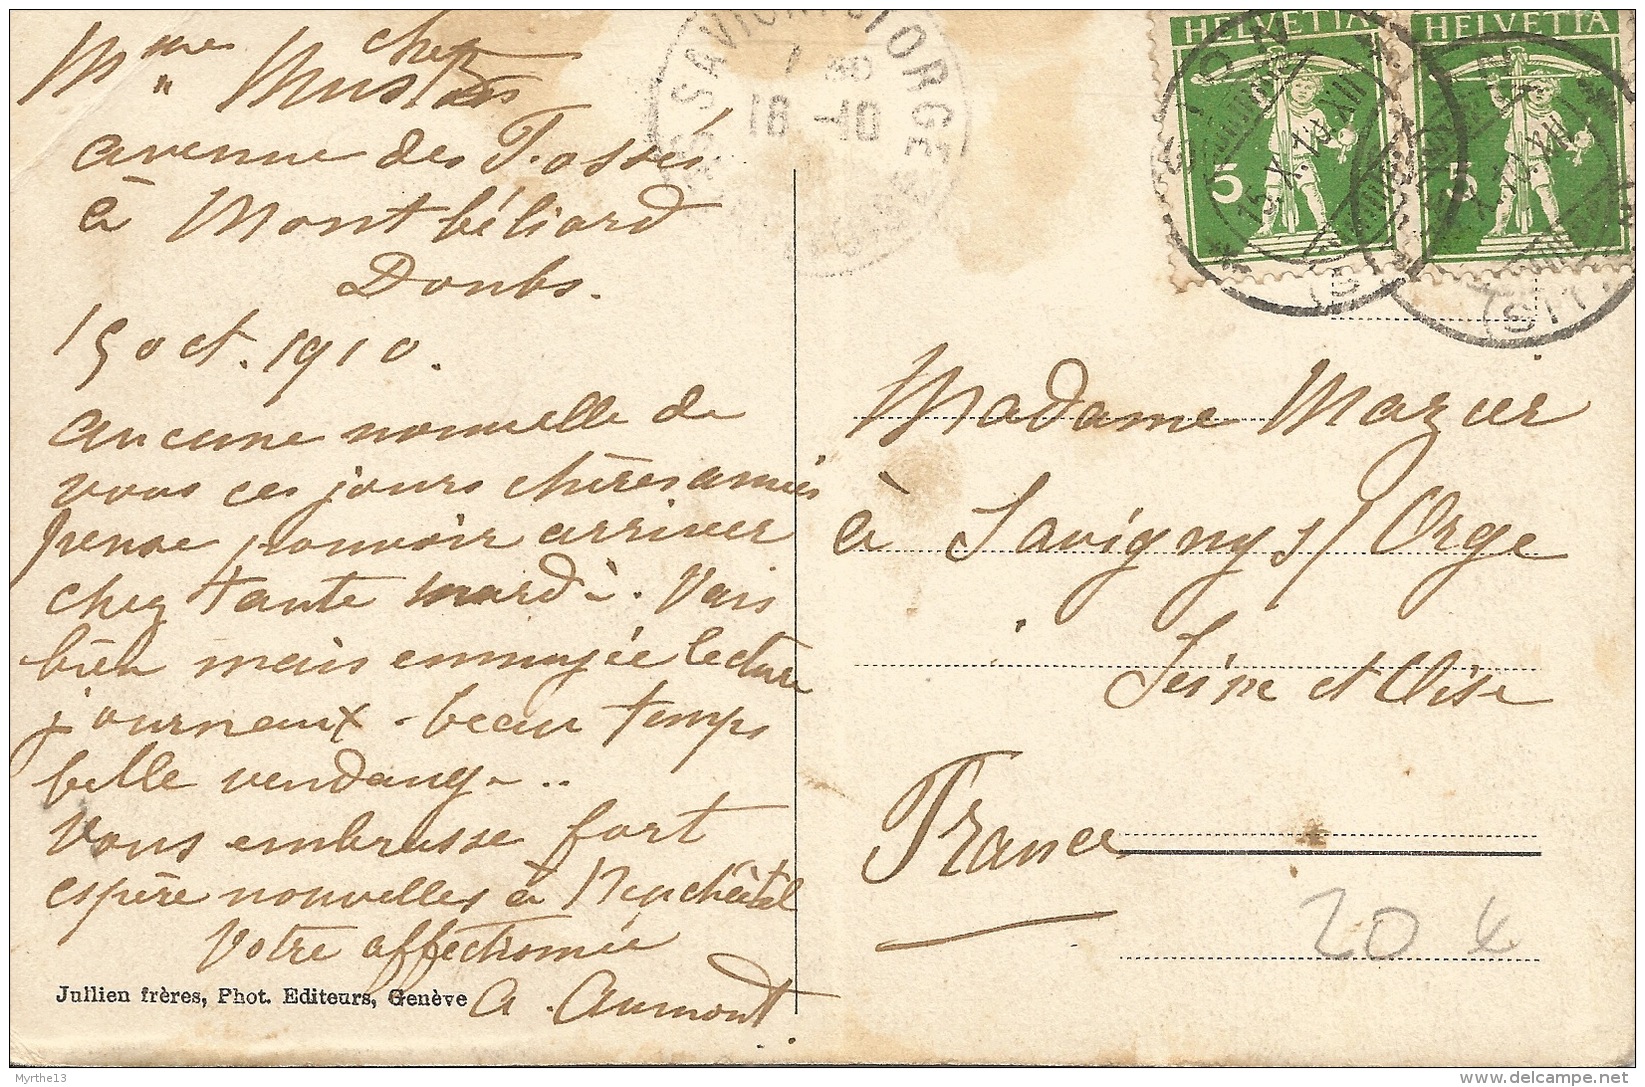 Mme chez
" Mus
avenue des Fossés
à Montbéliard
Doubs.
15 oct. 1910.
aucune nouvelle de
vous ces jours chères amies
pense pouvoir arriver
chez tante mardi. Vais
bien mais ennuyée lecture
journaux - beau temps
belle vendange..
Vous embrasse fort
espère nouvelles à Neuchâtel
Votre affectionnée
A. Aumont.
Jullien frères, Phot. Editeurs, Genève
SAVIGNY S/ ORGE
7 30
16 -10
HELVETIA
5
SION
15.X.10.XII
HELVETIA
5
X.10.XII
Madame Mazier
à Savigny s/ Orge
Seine et Oise
France
20
Myrthe13
delcampe.net